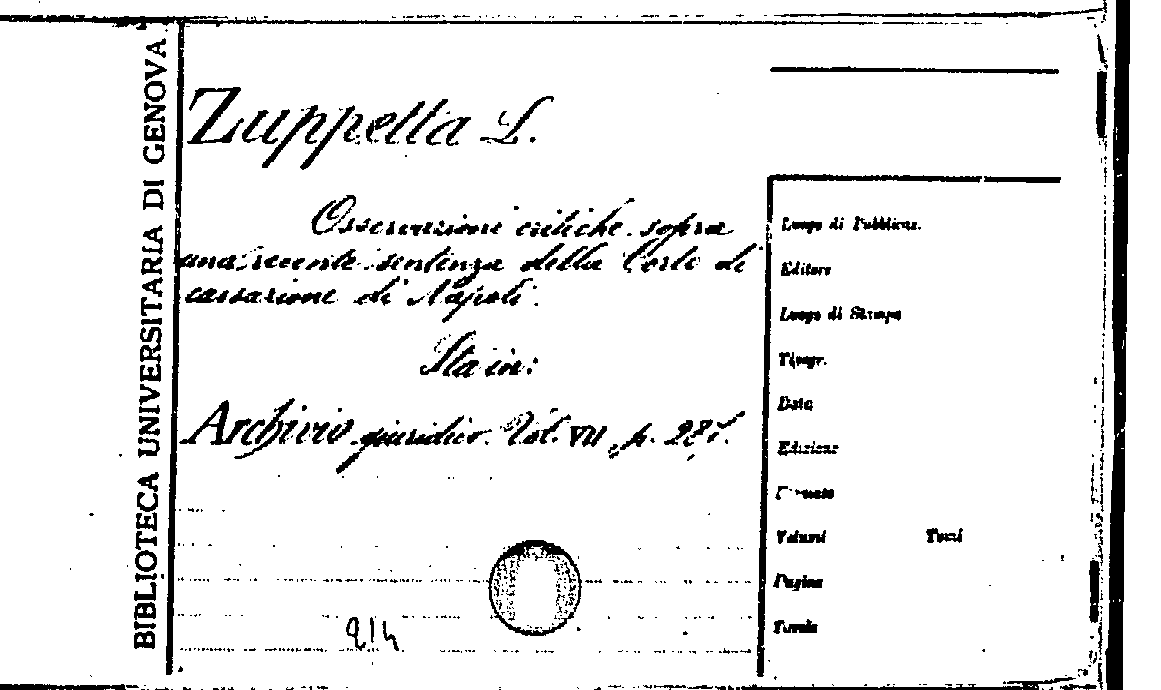 BIBLIOTECA UNIVERSITARIA DI GENOVA
Zuppetta L.
Osservazioni critiche sopra
una recente sentenza della Corte di
cassazione di Napoli.
Sta in:
Archivio giuridico. Vol. VII, p.
Luogo di Pubblicaz.
Editore
Luogo di Stampa
Tipogr.
Data
Edizione
Formato
Volumi Tomi
Pagine
Tavole